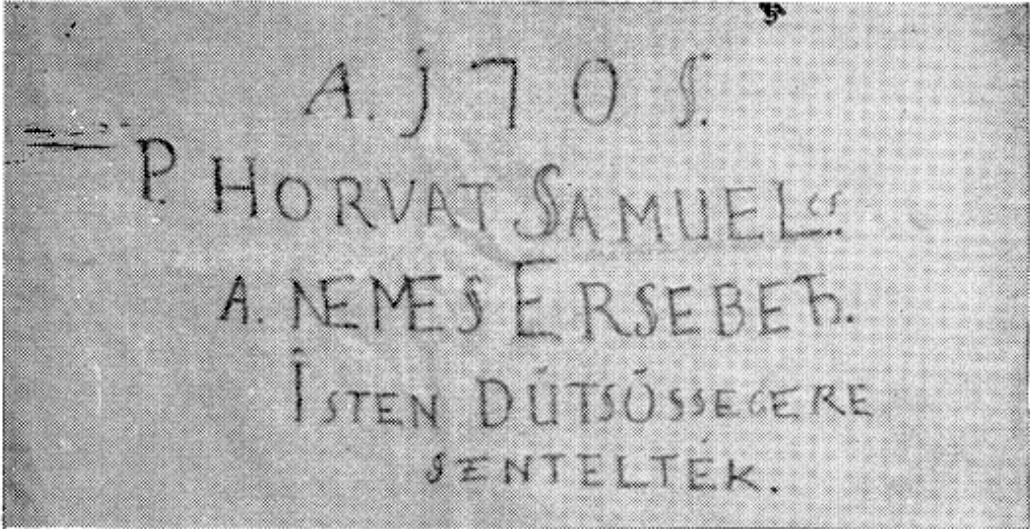 A. j 7 0 S.
P. HORVAT SAMUEL cs.
A. NEMES ERSEBETH.
ISTEN DÚTSÓSSEGERE
SENTELTÉK.